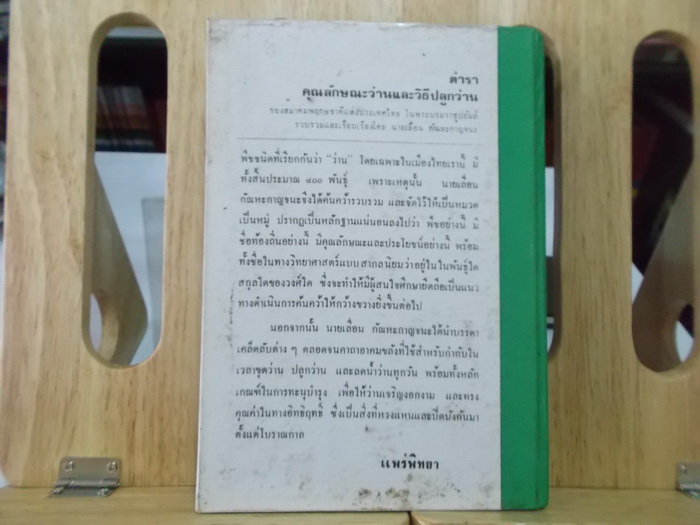 ตำรา
คุณลักษณะว่านและวิธีปลูกว่าน
ของสมาคมพฤกษชาติแห่งประเทศไทย ในพระบรมราชูปถัมภ์
รวบรวมและเรียบเรียงโดย นายเลื่อน กัณหะกาญจนะ
พืชชนิดที่เรียกกันว่า "ว่าน" โดยเฉพาะในเมืองไทยเรานี้ มี
ทั้งสิ้นประมาณ ๔๐๐ พันธุ์ เพราะเหตุนั้น นายเลื่อน
กัณหะกาญจนะจึงได้ค้นคว้ารวบรวม และจัดไว้ให้เป็นหมวด
เป็นหมู่ ปรากฏเป็นหลักฐานแน่นอนลงไปว่า พืชอย่างนี้ มี
ชื่อท้องถิ่นอย่างนี้ มีคุณลักษณะและประโยชน์อย่างนี้ พร้อม
ทั้งชื่อในทางวิทยาศาสตร์แบบสากลนิยมว่าอยู่ในพันธุ์ใด
สกุลใดของวงศ์ใด ซึ่งจะทำให้มีผู้สนใจศึกษายึดถือเป็นแนว
ทางดำเนินการค้นคว้าให้กว้างขวางยิ่งขึ้นต่อไป
นอกจากนั้น นายเลื่อน กัณหะกาญจนะได้นำบรรดา
เคล็ดลับต่าง ๆ ตลอดจนคาถาอาคมขลังที่ใช้สำหรับกำกับใน
เวลาขุดว่าน ปลูกว่าน และลดน้ำว่านทุกวัน พร้อมทั้งหลัก
เกณฑ์ในการทะนุบำรุง เพื่อให้ว่านเจริญงอกงาม และทรง
คุณค่าในทางอิทธิฤทธิ์ ซึ่งเป็นสิ่งที่หวงแหนและปิดบังกันมา
ตั้งแต่โบราณกาล
แพร่พิทยา